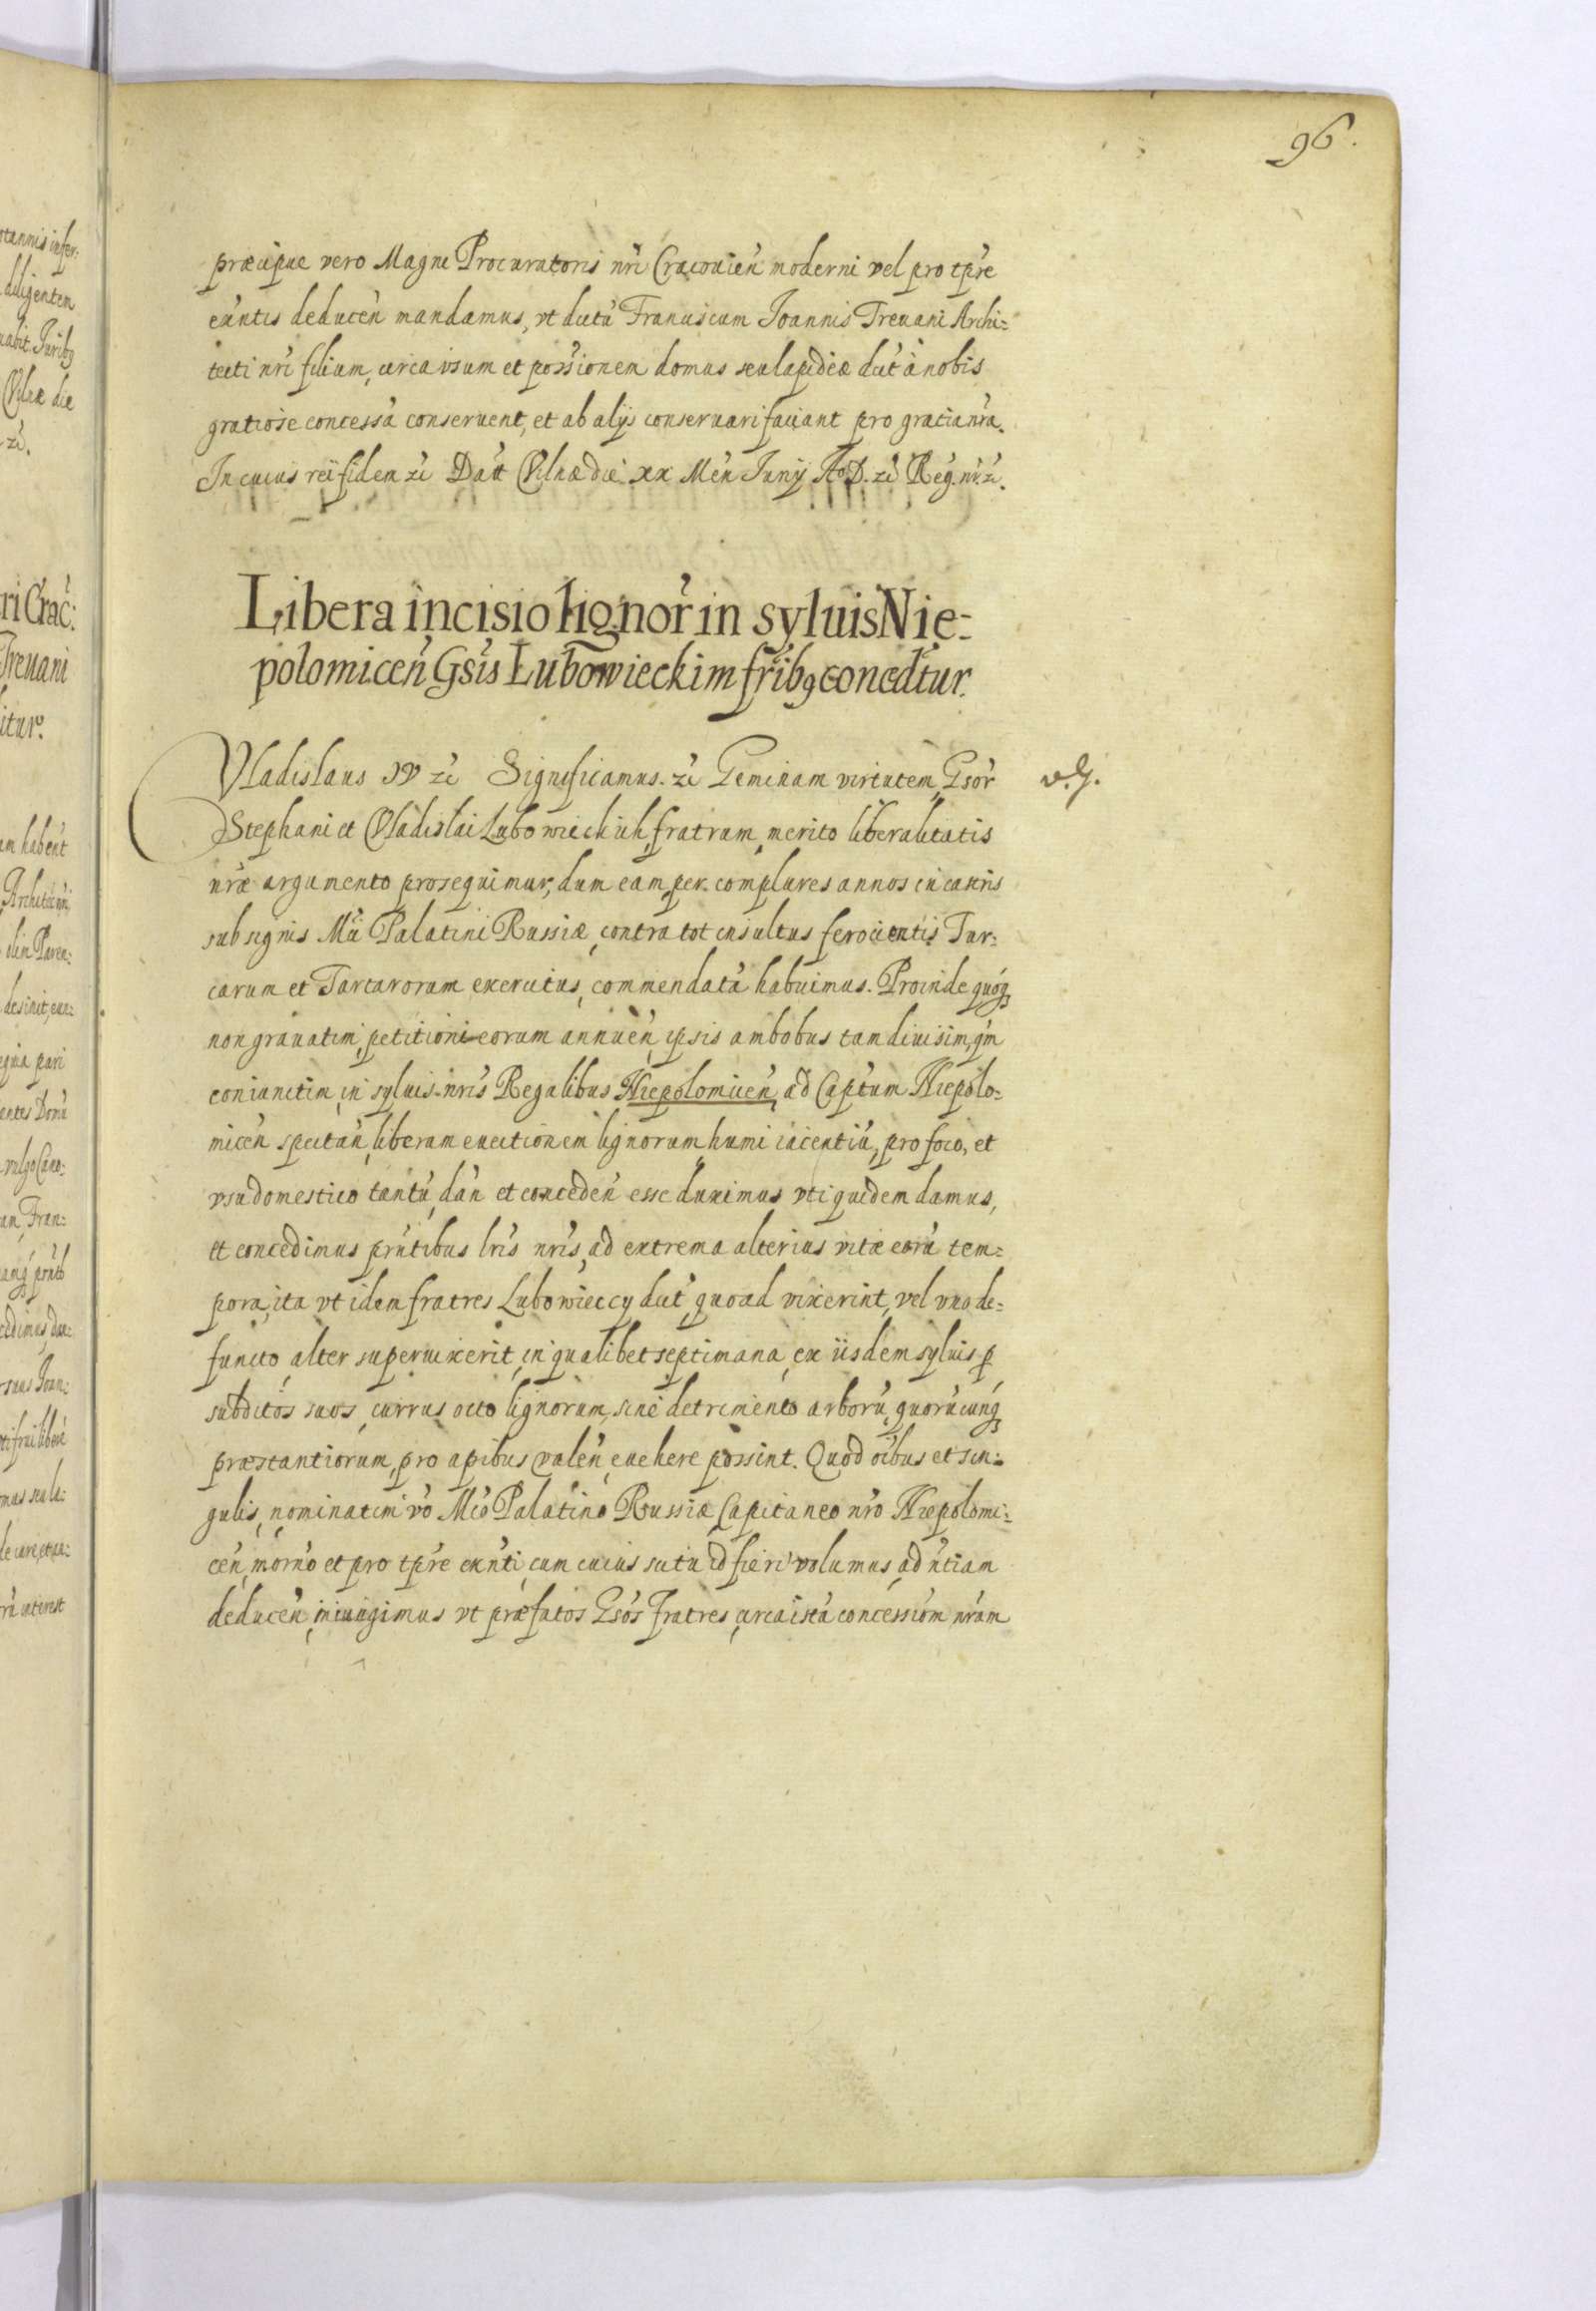 96.
præcipue vero Magne Procuratoris nr̃i Cracouien̾ moderni vel pro tp̃re
exn̾tis deducen̾ mandamus, vt dictũ Franciscum Joannis Treuani Archi=
tecti nr̃i filium, circa vsum et possionem domus seu lapideæ dict̾ à nobis
gratiose concessã conseruent, et ab alijs conseruari faciant pro gratia nr̃a.
In cuius rei fidem zc̃ Datt Vilnæ die xx Men̾ Junij Ao D. zc̃ Reg. nr̃ zc̃.
Libera incisio lignor̾ in syluis Nie=
polomicen̾ Gsis Lubowieckim frib9 concedtur.
Vladislaus IV zc̃ Significamus. zc̃ Geminam virtutem Gsor̾
v. g.
Stephani et Vladislai Lubowieckich, fratrum, merito liberalitatis
nr̃æ argumento prosequimur, dum eam per complures annos in castris
sub signis Mci Palatini Russiæ, contra tot insultus ferocientis Tur=
carum et Tartarorum exercitus, commendatã habuimus. Proinde quoq̃
non grauatim petitioni eorum annuen̾, ipsis ambobus tam diuisim, q̃m
coniunctim, in syluis nr̃is Regalibus Niepolomicen̾, ad Capt̾um Niepolo=
micen̾ spectan̾, liberam euectionem lignorum humi iacentiũ, pro foco, et
vsu domestico tantũ, dan̾ et conceden̾ esse duximus vti quidem damus,
et concedimus prn̾tibus lr̃is nr̃is, ad extrema alterius vitæ eorũ tem=
pora, ita vt idem fratres Lubowieccy dict̾, quoad vixerint, vel vno de=
functo, alter superuixerit, in qualibet septimana, ex iisdem syluis p̱
subditos suos, currus octo lignorum, sine detrimento arborũ, quorũcunq̃
præstantiorum, pro apibus valen̾, euehere possint. Quod oĩbus et sin=
gulis, nominatim vo Mco Palatino Russiæ Capitaneo nr̃o Niepolomi=
cen̾, morno et pro tp̃re exn̾ti, cum cuius scitu id fieri volumus, ad n̾tiam
deducen̾, iniungimus vt præfatos Gsos fratres, circa istã concessiom̾ nr̃am